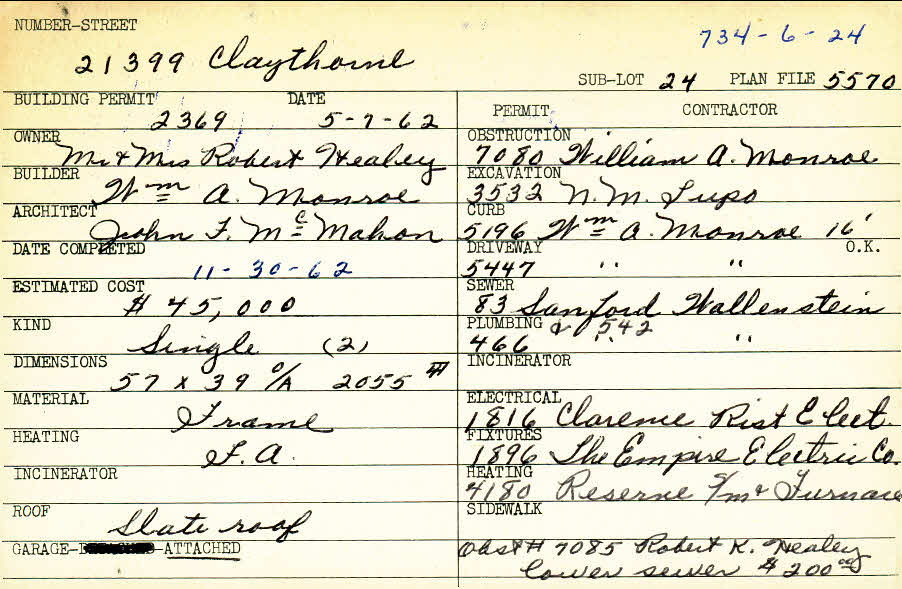 NUMBER-STREET
734-6-24
21399 Claythorne
SUB-LOT 24 PLAN FILE 5570
BUILDING PERMIT DATE
2369 5-7-62
OWNER
Mr & Mrs Robert Healey
BUILDER
Wm A. Monroe
ARCHITECT
John F. Mc Mahon
DATE COMPLETED
11-30-62
ESTIMATED COST
$ 45,000
KIND
Single (2)
DIMENSIONS
57 x 39 O/A 2055 #
MATERIAL
Frame
HEATING
F.A.
INCINERATOR
ROOF
Slate roof
GARAGE- ATTACHED
PERMIT CONTRACTOR
OBSTRUCTION
7080 William A. Monroe
EXCAVATION
3532 N.M. Lupo
CURB
5196 Wm A. Monroe 16'
DRIVEWAY O.K.
5447 " "
SEWER
83 Sanford Wallenstein
PLUMBING & 542
466 " "
INCINERATOR
ELECTRICAL
1816 Clarence Rist Elect.
FIXTURES
1896 The Empire Electric Co.
HEATING
4180 Reserve Furnace
SIDEWALK
Obst # 7085 Robert K. Healey
lower sewer $ 200 00